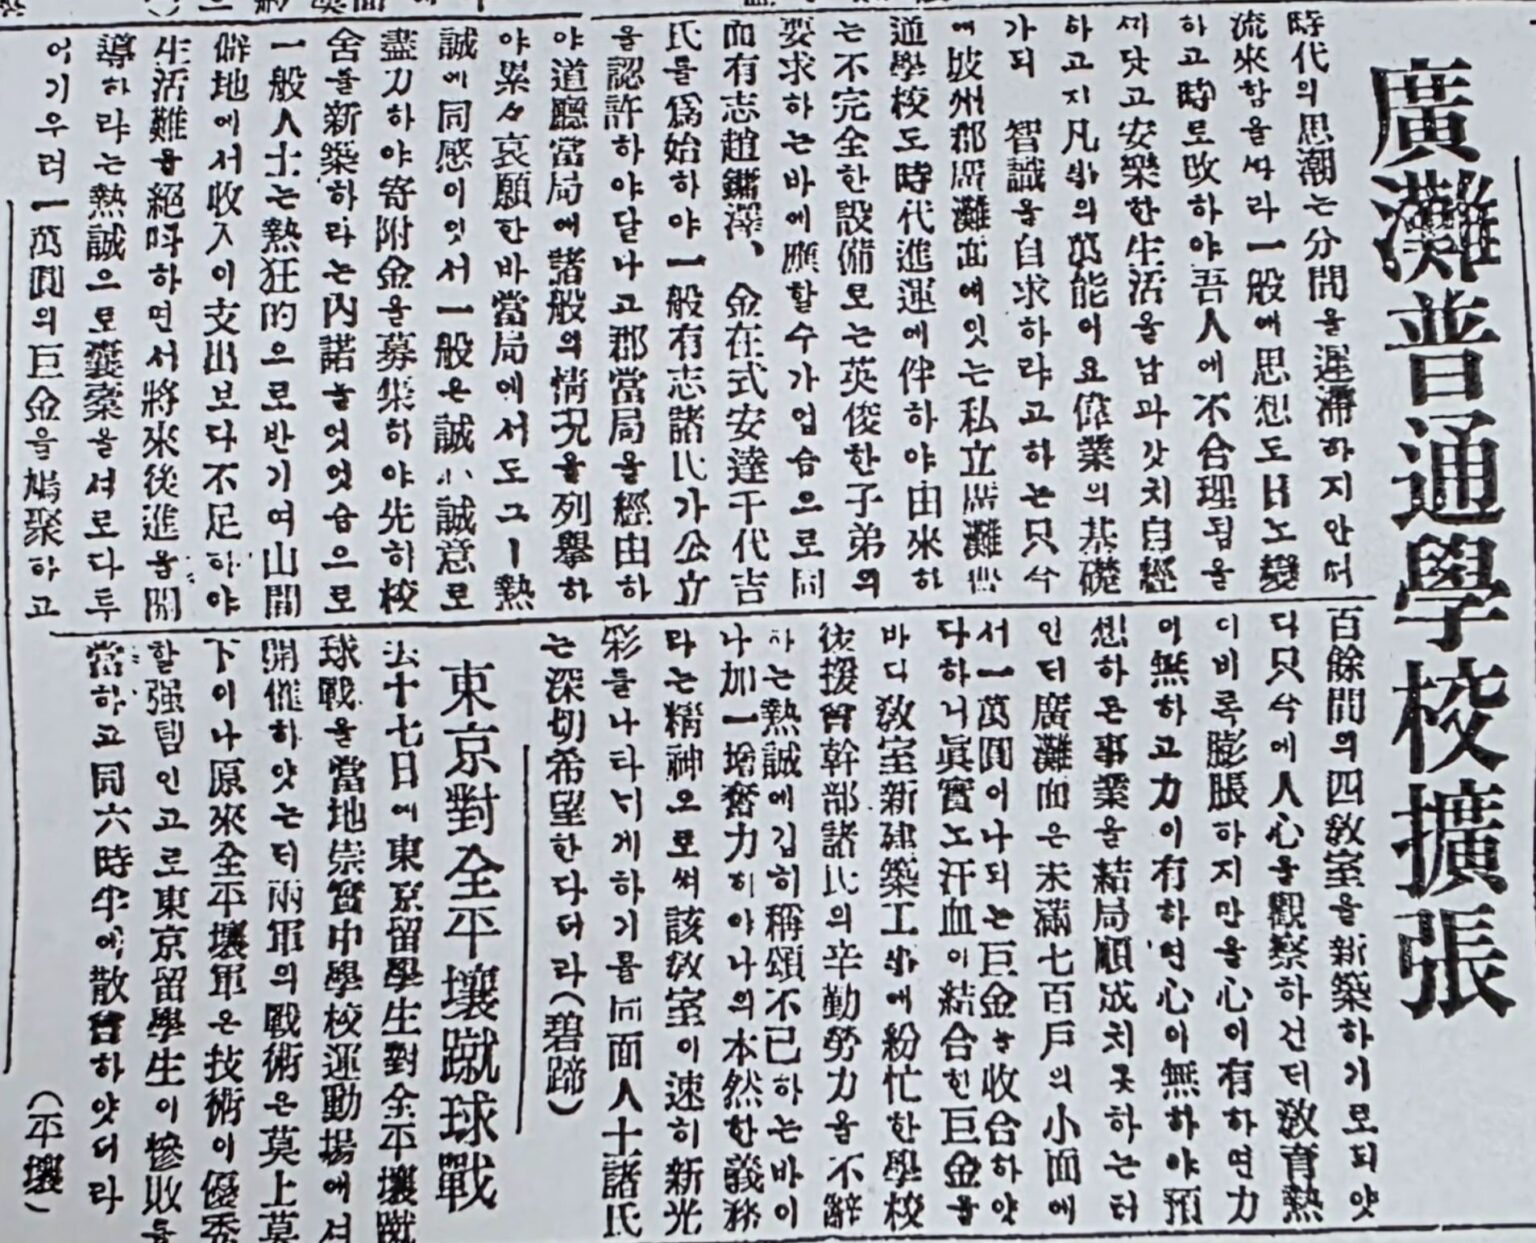 廣灘普通學校擴張
時代의思潮는分間을遲滯하지안어
流來함을따라一般에思想도日노變
하고時로改하야吾人에不合理됨을
깨닷고安樂한生活을남과갓치自經
하고지凡째의萬能이요偉業의基礎
가되 智識을自求하랴고하는只今
에坡州郡廣灘面에잇는私立廣灘普
通學校도時代進運에伴하야由來하
는不完全한設備로는英俊한子弟의
要求하는바에應할수가업슴으로同
面有志趙鏞澤、金在式安逵干代吉
氏를爲始하야一般有志諸氏가公立
을認許하야달나고郡當局을經由하
야道廳當局에諸般의情况을列擧하
야累々哀願한바當局에서도그ㅣ熱
誠에同感이잇서一般은誠心誠意로
盡力하야寄附金을募集하야先히校
舍를新築하라는內諾을엇엇슴으로
一般人士는熱狂的으로반기여山間
僻地에서收入이支出보다不足하야
生活難을絕叫하면서將來後進을開
導하랴는熱誠으로囊槖을서로다투
어기우려一萬圓의巨金을鳩聚하고
百餘間의四敎室을新築하기로되얏
다只今에人心을觀察하건대敎育熱
이비록膨脹하지만을心이有하면力
이無하고力이有하면心이無하야預
想하든事業을結局順成치못하는터
인데廣灘面은未滿七百戶의小面에
서一萬圓이나되는巨金을收合하얏
다하니眞實노汗血이結合한巨金을
바더敎室新建築工事에紛忙한學校
後援會幹部諸氏의辛勤勞力을不辭
하는熱誠에깁히稱頌不已하는바이
나加一增奮力하야나의本然한義務
라는精神으로써該敎室이速히新光
彩를나타내게하기를同面人士諸氏
는深切希望한다더라(碧蹄)
東京對全平壤蹴球戰
去十七日에東京留學生對全平壤蹴
球戰을當地崇實中學校運動場에서
開催하얏는데兩軍의戰術은莫上莫
下이나原來全平壤軍은技術이優秀
할强팀인고로東京留學生이慘敗를
當하고同六時半에散會하얏더라
(平壤)